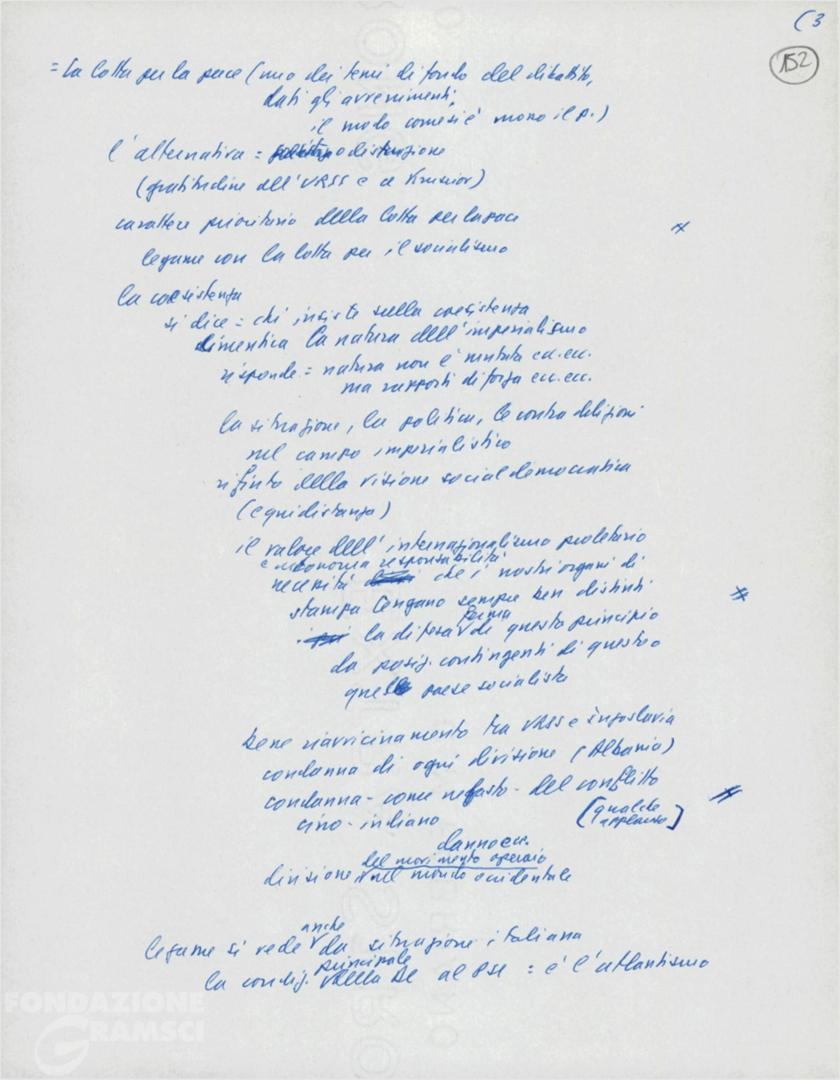 (3
152
= La lotta per la pace (uno dei temi di fondo del dibattito,
dati gli avvenimenti,
il modo come si è mosso il p.)
l'alternativa = o distruzione
(gratitudine all'URSS e a Krusciov)
carattere prioritario della lotta per la pace
legame con la lotta per il socialismo
la coesistenza
si dice = chi insiste sulla coesistenza
dimentica la natura dell'imperialismo
risponde = natura non è mutata ecc. ecc.
ma rapporti di forza ecc. ecc.
la situazione, la politica, le contraddizioni
nel campo imperialistico
rifiuto della visione socialdemocratica
(equidistanza)
il valore dell'internazionalismo proletario
e autonomia responsabilità
necessità che i nostri organi di
stampa tengano sempre ben distinti
la difesa ferma di questo principio
da posiz. contingenti di questo o
quel paese socialista
bene riavvicinamento tra URSS e Iugoslavia
condanna di ogni divisione (Albania)
condanna - come nefasto - del conflitto
cino-indiano
[qualche
applauso]
danno ecc.
del movimento operaio
divisione nel mondo occidentale
legame si vede anche da situazione italiana
la condiz. principale della DC al PSI = è l'atlantismo
FONDAZIONE
GRAMSCI